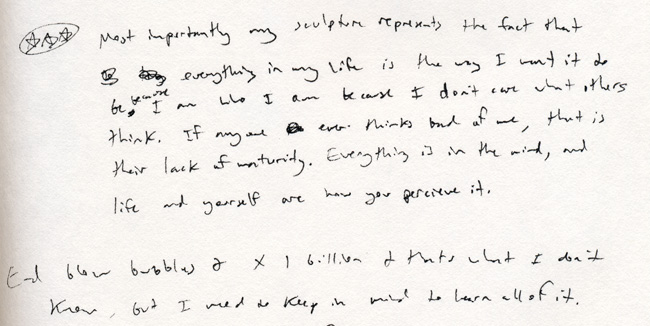 Most importantly my sculpture represents the fact that
everything in my life is the way I want it to
be, because I am who I am because I don't care what others
think. If anyone ever thinks bad of me, that is
their lack of maturity. Everything is in the mind, and
life and yourself are how you percieve it.
End blow bubbles x 1 billion & thats what I don't
know, but I need to keep in mind to learn all of it.